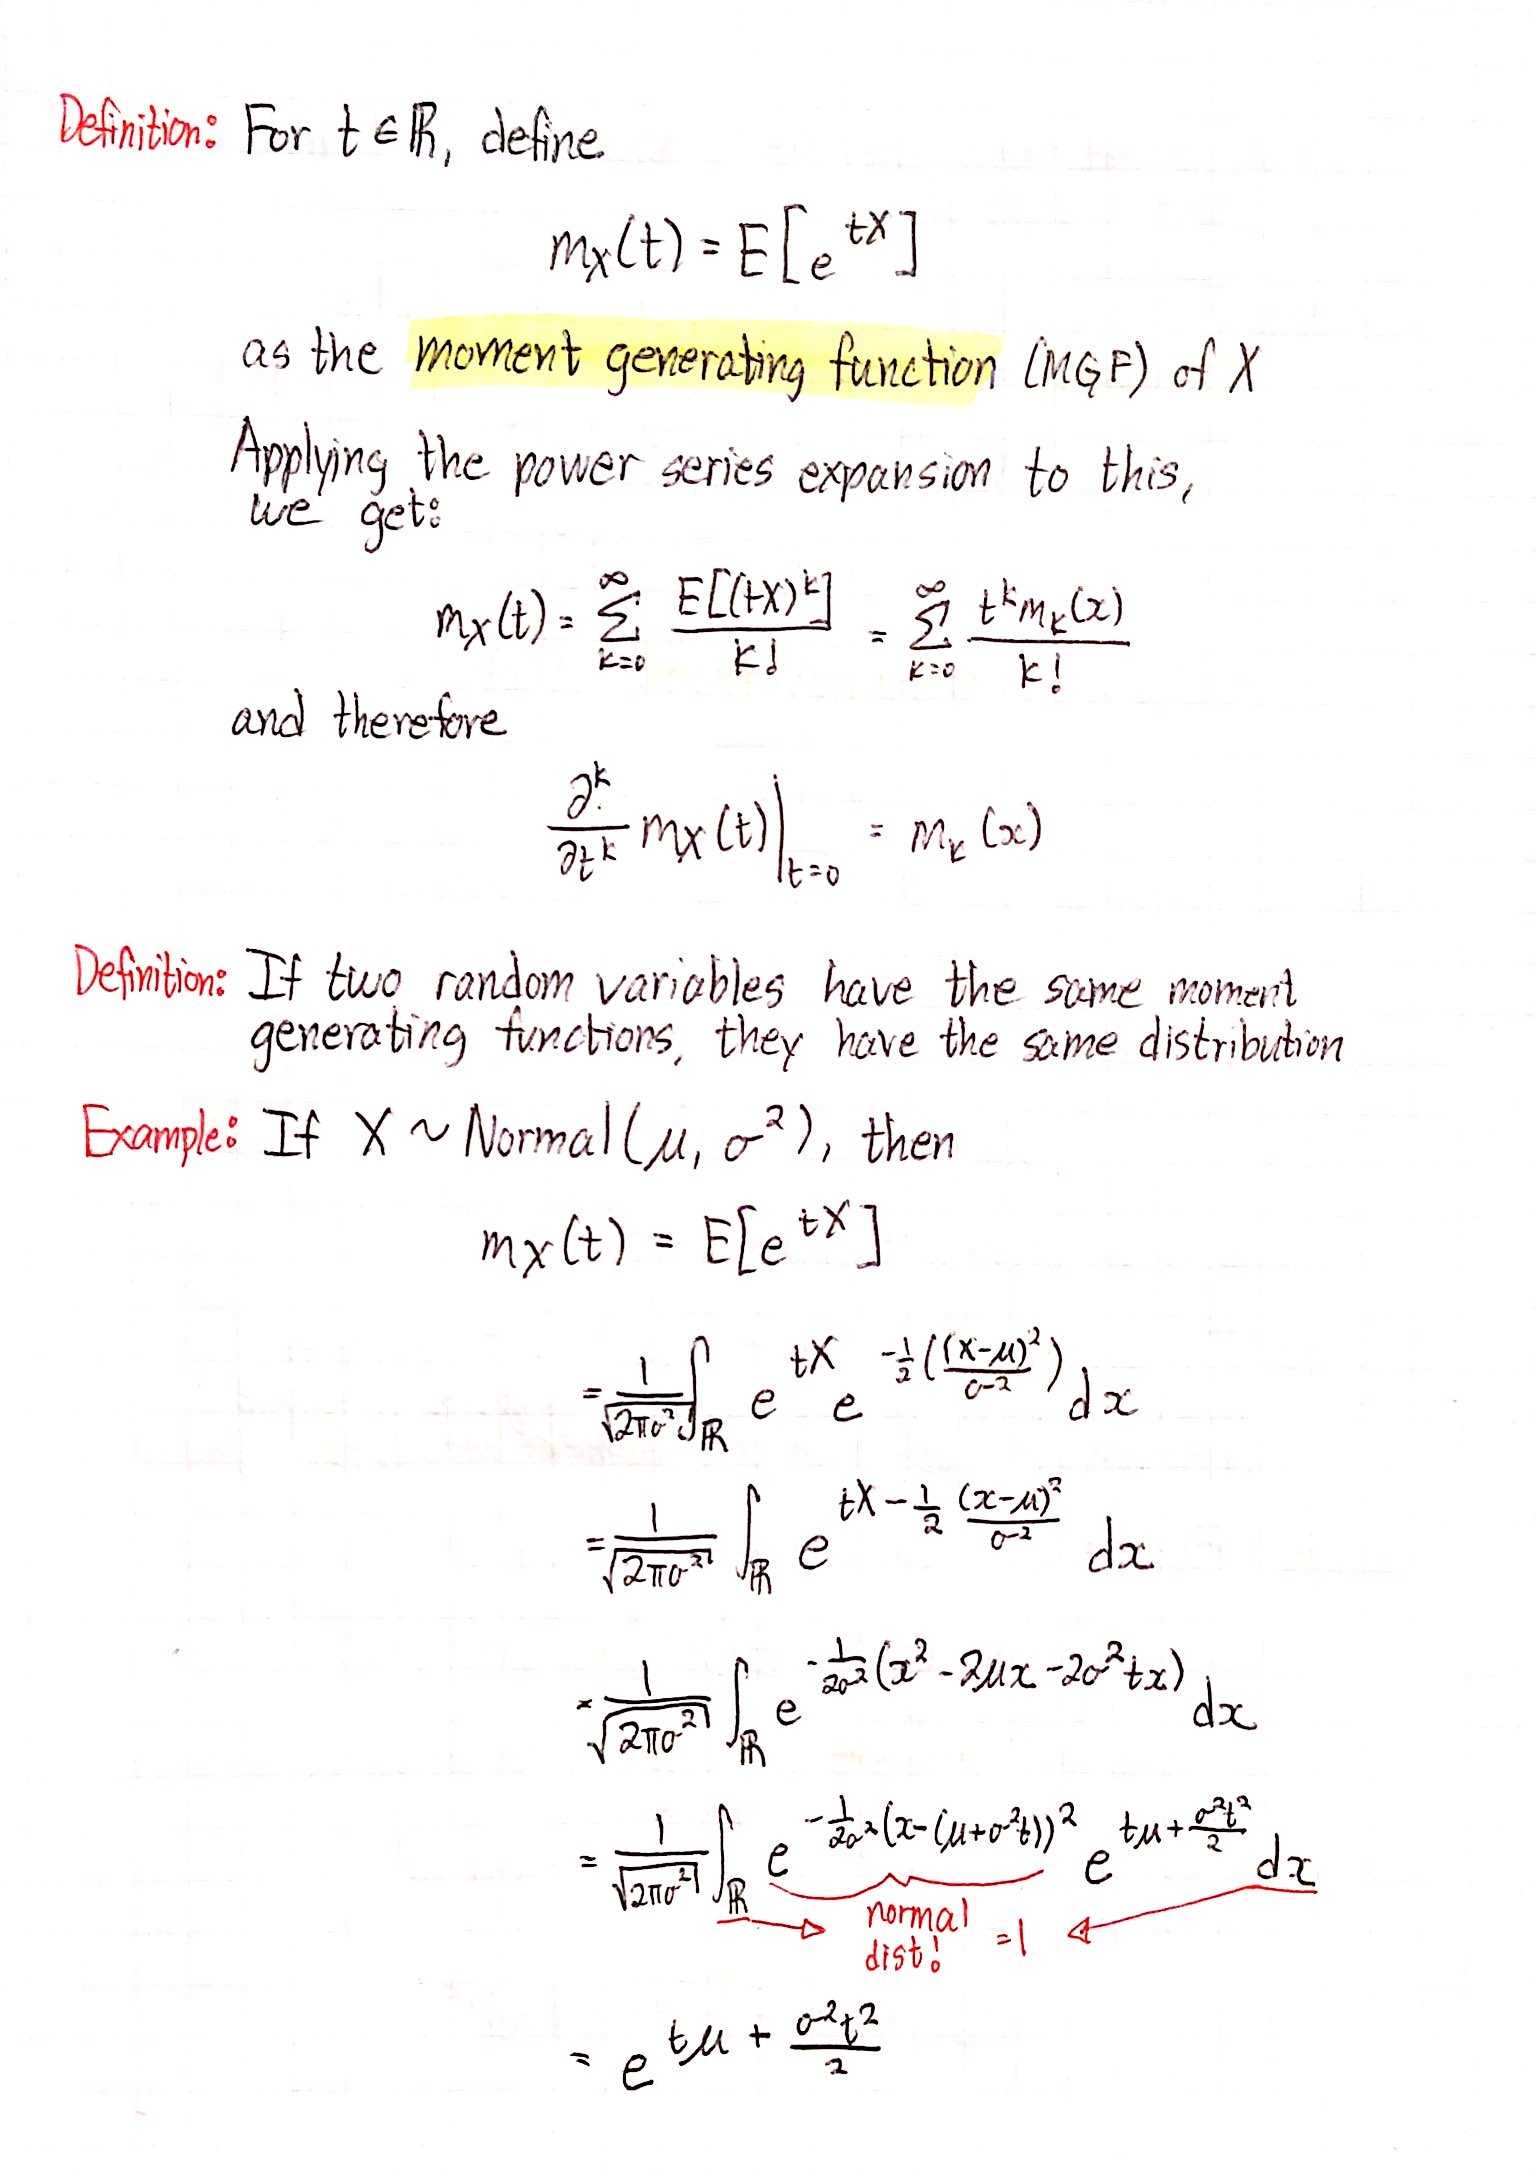 Definition: For t ∈ ℝ, define
m_X(t) = E[e^{tX}]
as the moment generating function (MGF) of X
Applying the power series expansion to this,
we get:
m_X(t) = ∑_{k=0}^{∞} E[(tX)^k] / k! = ∑_{k=0}^{∞} t^k m_k(x) / k!
and therefore
∂^k/∂t^k m_X(t) |_{t=0} = m_k(x)
Definition: If two random variables have the same moment
generating functions, they have the same distribution
Example: If X ~ Normal(μ, σ²), then
m_X(t) = E[e^{tX}]
= 1/√(2πσ²) ∫_ℝ e^{tX} e^{-1/2((X-μ)²/σ²)} dx
= 1/√(2πσ²) ∫_ℝ e^{tX - 1/2 (x-μ)²/σ²} dx
= 1/√(2πσ²) ∫_ℝ e^{-1/2σ² (x² - 2μx - 2σ²tx)} dx
= 1/√(2πσ²) ∫_ℝ e^{-1/2σ² (x-(μ+σ²t))²} e^{tμ + σ²t²/2} dx
normal = 1
dist!
= e^{tμ + σ²t²/2}